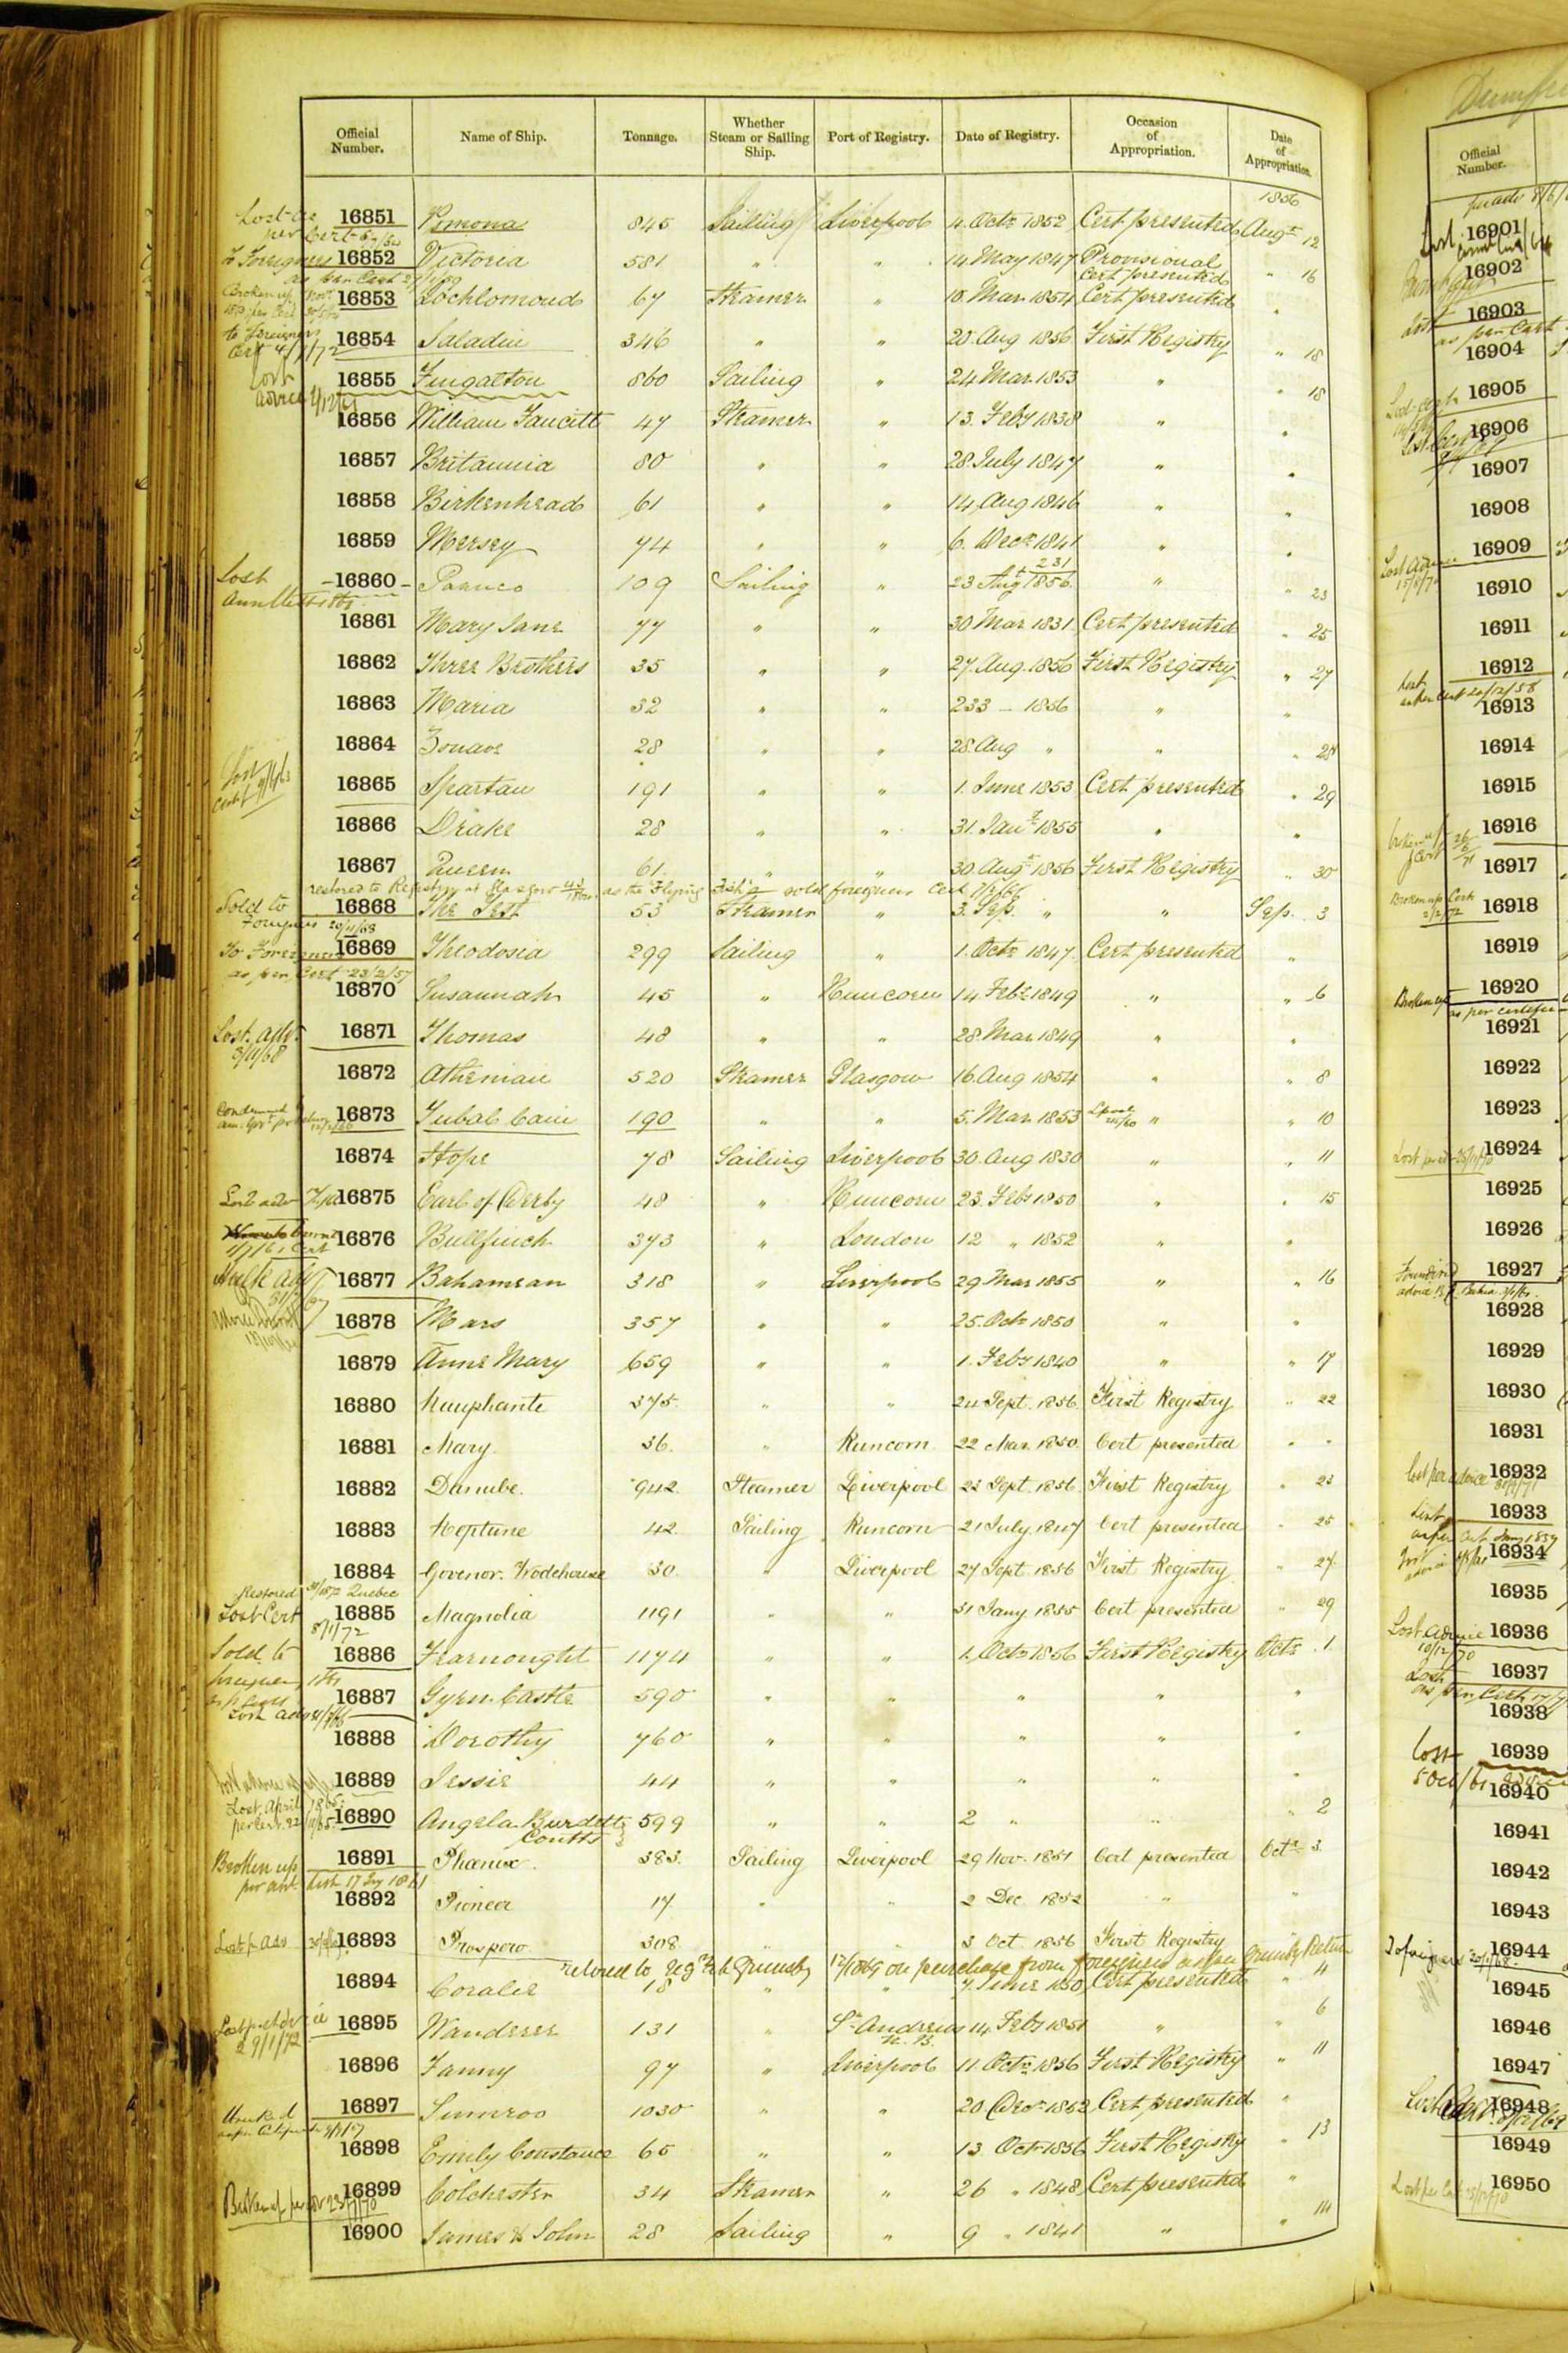 Official Number. Name of Ship. Tonnage. Whether Steam or Sailing Ship. Port of Registry. Date of Registry. Occasion of Appropriation. Date of Appropriation.
1856
16851 Pomona 845 Sailing Liverpool 4. Octr 1852 Cert presented Augt 12
16852 Victoria 581 " " 14 May 1847 Provisional Cert presented " 16
16853 Lochlomond 67 Steamer " 18. Mar. 1854 Cert presented "
16854 Saladin 346 " " 20. Aug 1856 First Registry " 18
16855 Fingalton 860 Sailing " 24 Mar. 1853 " " 18
16856 William Faucitt 47 Steamer " 13. Feby 1838 " "
16857 Britannia 80 " " 28. July 1847 " "
16858 Birkenhead 61 " " 14 Aug 1846 " "
16859 Mersey 74 " " 6. Decr 1841 " "
Lost 16860 Panuco 109 Sailing " 23 Augt 1856. " " 23
16861 Mary Jane 77 " " 30 Mar 1831 Cert presented " 25
16862 Three Brothers 35 " " 27. Aug. 1856 First Registry " 27
16863 Maria 32 " " 233 - 1856 " "
16864 Zouave 28 " " 28. Aug " " " 28
16865 Spartan 191 " " 1. June 1853 Cert presented " 29
16866 Drake 28 " " 31. Jany 1855 " "
16867 Queen 61. " " 30. Augt 1856 First Registry " 30
restored to Registry at Glasgow as the Flying Fish sold foreigners Cert
Sold to Foreigners 20/11/68 16868 The Jest 53 Steamer " 3. Sep. " " Sep. 3
To Foreigners as per Cert 23/2/57 16869 Theodosia 299 Sailing " 1. Octr 1847 Cert presented "
16870 Susannah 45 " Runcorn 14 Feby 1849 " " 6
Lost. adv. 3/11/68 16871 Thomas 48 " " 28. Mar. 1849 " "
16872 Athenian 520 Steamer Glasgow 16. Aug 1854 " " 8
16873 Jubal Cain 190 " " 5. Mar. 1853 " " 10
16874 Hope 78 Sailing Liverpool 30. Aug 1830 " " 11
16875 Earl of Derby 48 " Runcorn 23. Feby 1850 " " 15
16876 Bullfinch 373 " London 12 " 1852 " "
16877 Bahamian 318 " Liverpool 29 Mar 1855 " " 16
16878 Mars 357 " " 25. Octr 1850 " "
16879 Anne Mary 659 " " 1. Feby 1840 " " 17
16880 Nauphante 375. " " 24 Sept. 1856 First Registry " 22
16881 Mary. 36. " Runcorn 22 Mar. 1850 Cert presented " "
16882 Danube. 942 Steamer Liverpool 22 Sept. 1856 First Registry " 23
16883 Neptune 42. Sailing Runcorn 21 July 1847 Cert presented " 25
16884 Govenor. Wodehouse 30 " Liverpool 27 Sept. 1856 First Registry " 27
Restored Quebec
Lost Cert 8/1/72 16885 Magnolia 1191 " " 31 Jany 1855 Cert presented " 29
Sold to 16886 Fearnought 1174 " " 1. Octr 1856 First Registry Octr 1
16887 Gyrn. Castle 590 " " " " "
16888 Dorothy 760 " " " " "
16889 Jessie 44 " " " " "
Lost. April 1865. 16890 Angela Burdett Coutts 599 " " 2 " " " 2
Broken up 16891 Phœnix. 383. Sailing Liverpool 29 Nov. 1851 Cert presented Octr 3
16892 Pioneer 17. " " 2 Dec. 1852 " "
16893 Prospero 308 " " 3 Oct 1856 First Registry "
16894 Coralie 18 " " 7. June 1850 Cert presented " 4
16895 Wanderer 131 " St Andrews N. B. 14 Feby 1851 " " 6
16896 Fanny 97 " Liverpool 11. Octr 1856 First Registry " 11
16897 Sumroo 1030 " " 20. Decr 1852 Cert presented "
16898 Emily Constance 65 " " 13. Octr 1856 First Registry " 13
16899 Colchester 34 Steamer " 26 " 1848 Cert presented "
16900 James & John 28 Sailing " 9 " 1841 " " 14
Official Number.
16901
16902
16903
16904
16905
16906
16907
16908
16909
16910
16911
16912
16913
16914
16915
16916
16917
16918
16919
16920
16921
16922
16923
16924
16925
16926
16927
16928
16929
16930
16931
16932
16933
16934
16935
16936
16937
16938
16939
16940
16941
16942
16943
16944
16945
16946
16947
16948
16949
16950